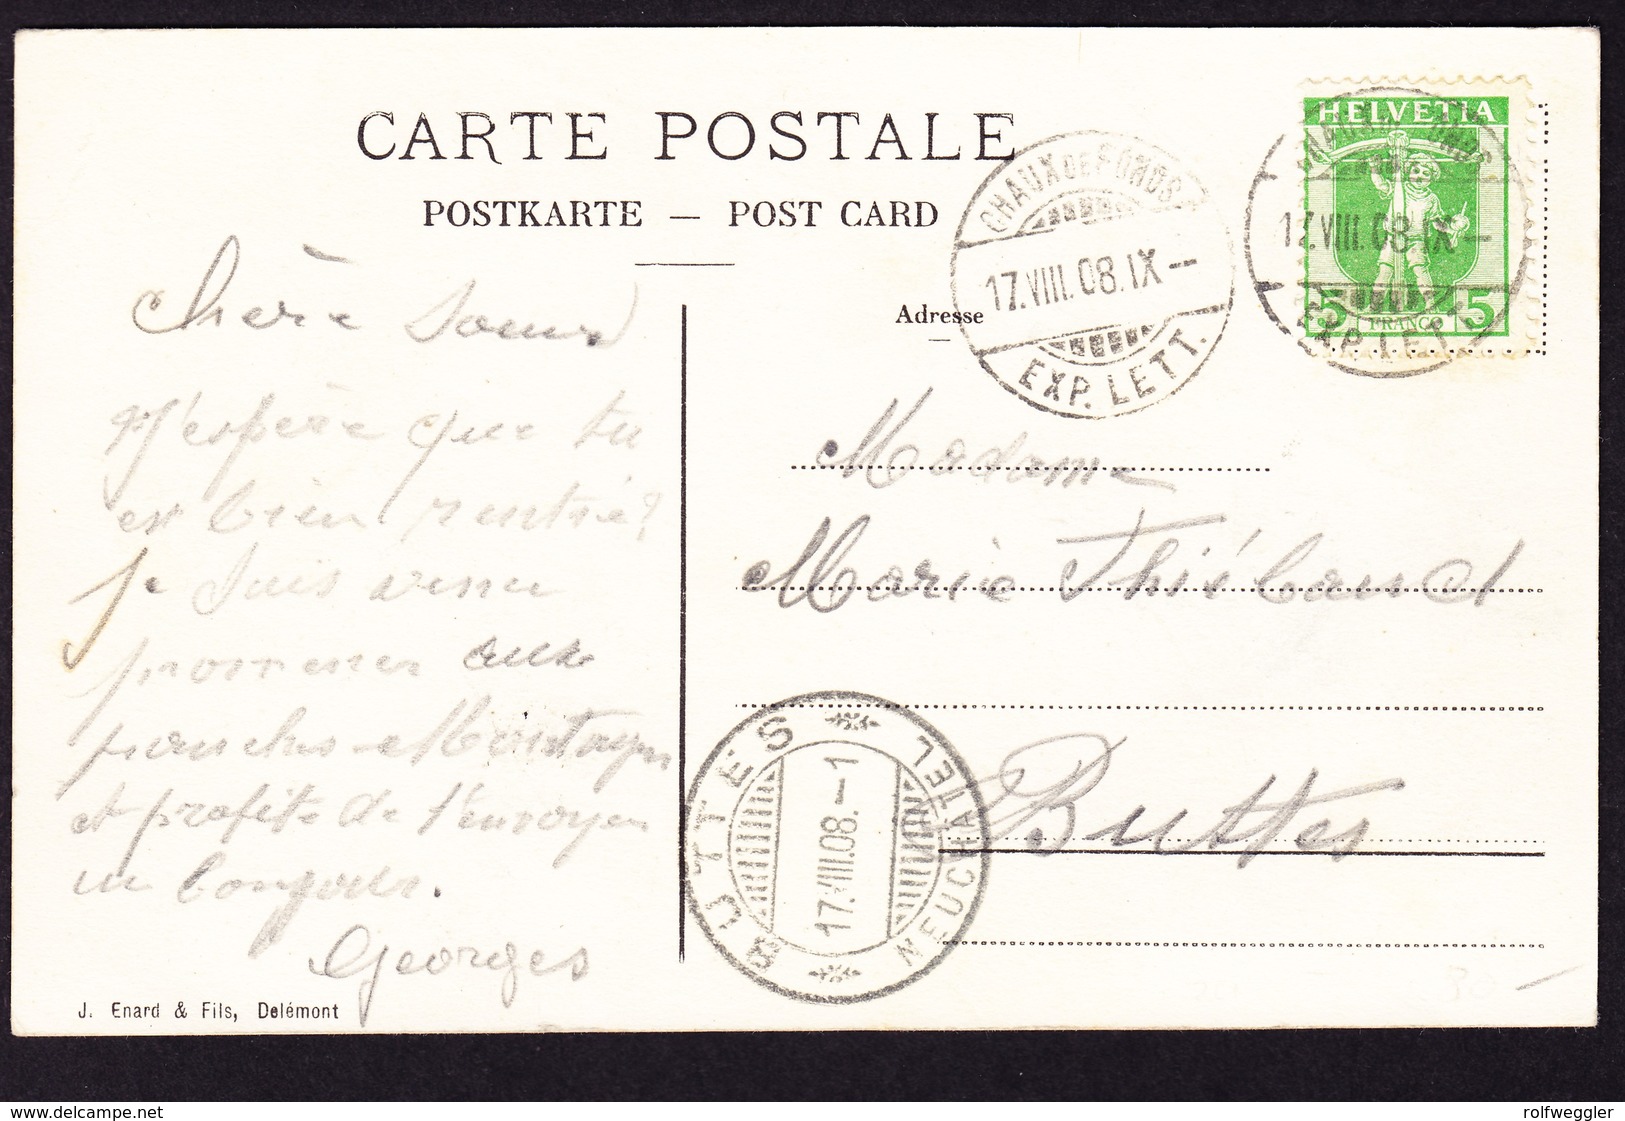 CARTE POSTALE
POSTKARTE — POST CARD
HELVETIA
5 FRANCO 5
CHAUX DE FONDS
17.VIII.08.IX—
EXP. LETT.
CHAUX DE FONDS
17.VIII.08.IX—
EXP. LETT.
Adresse
Chère Soeur
J'espère que tu
es bien rentrée?
je suis venu
promener aux
franches-Montagnes
et profite de t'envoyer
un bonjour.
Georges
Madame
Marie Thiébaud
Buttes
BUTTES
17.VIII.08.—1
NEUCHATEL
J. Enard & Fils, Delémont
www.delcampe.net
rolfweggler